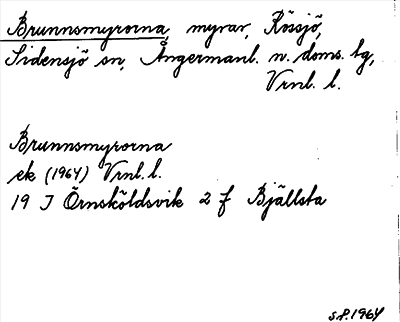 Brunnsmyrorna, myrar, Rössjö,
Sidensjö sn, Ångermanl. n. doms. tg,
Vrnl. l.
Brunnsmyrorna
ek (1964) Vrnl. l.
19 J Örnsköldsvik 2 f Bjällsta
S.P. 1964